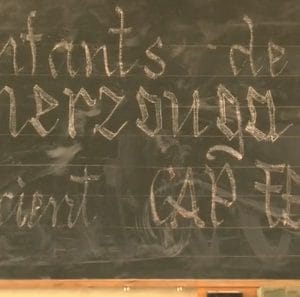 nfants de
merzouga
cient CAP TE